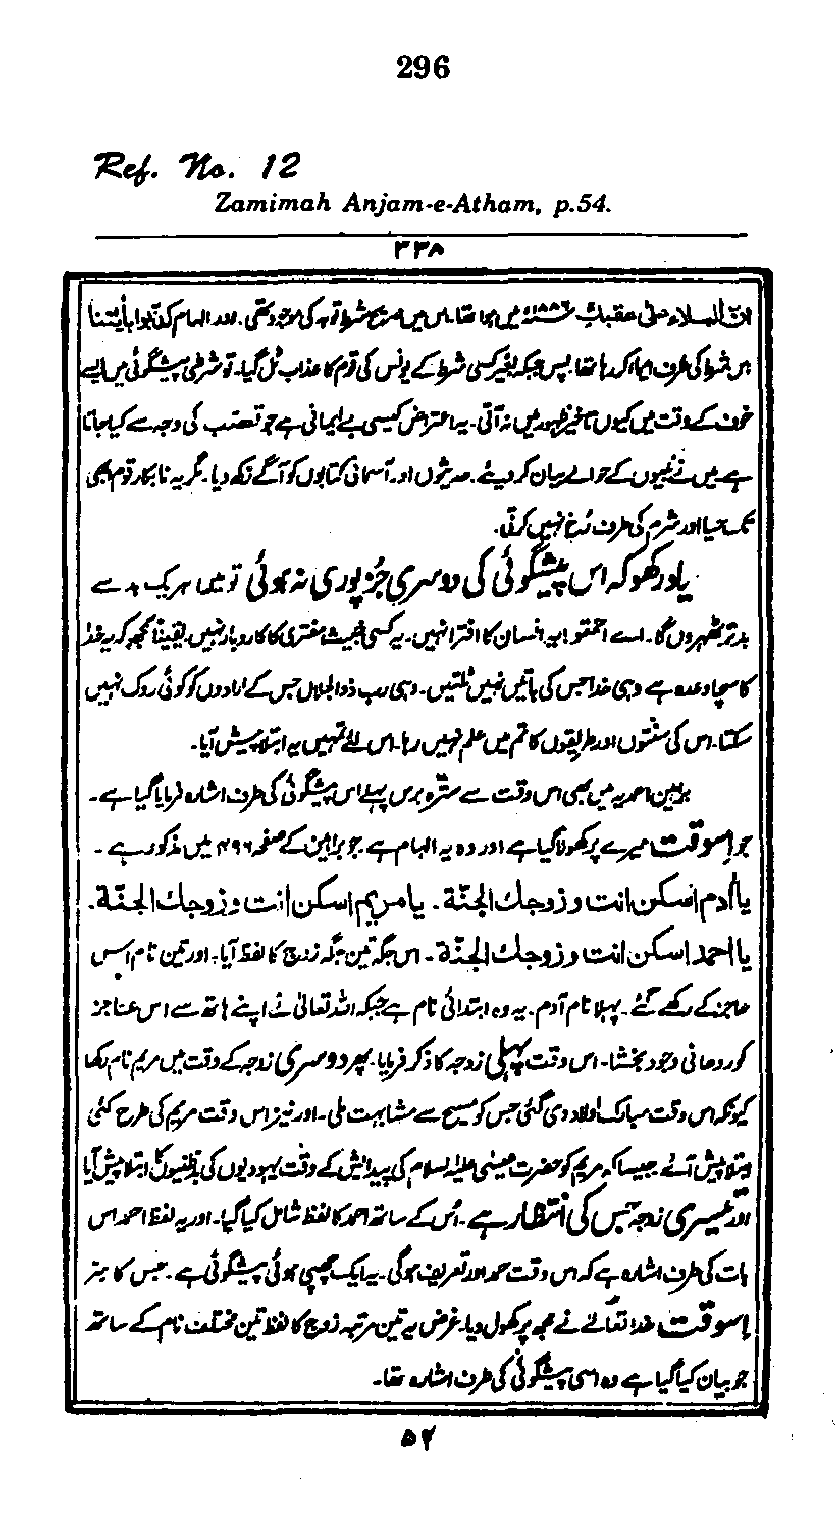 296
Ref. No. 12
Zamimah Anjam-e-Atham, p.54.
۳۳۸
انّ البلاء علیٰ عقبك ۱۸۸۶ء میں ہوا تھا۔ اس میں صریح شرط توبہ کی موجود تھی۔ اور الہام کذّبوا بآیاتنا
اس شرط کی طرف ایما کر رہا تھا۔ پس جبکہ بغیر کسی شرط کے یونس کی قوم کا عذاب ٹل گیا۔ تو شرطی پیشگوئی میں ایسے
خوف کے وقت میں کیوں تاخیر ظہور میں نہ آتی۔ یہ اعتراض کیسی بے ایمانی ہے جو تعصب کی وجہ سے کیا جاتا
ہے میں نے نبیوں کے حوالے بیان کر دیئے۔ حدیثوں اور آسمانی کتابوں کو آگے رکھ دیا۔ مگر یہ نابکار قوم ابھی
تک حیا اور شرم کی طرف رُخ نہیں کرتی۔
یاد رکھو کہ اس پیشگوئی کی دوسری جُز پوری نہ ہوئی تو میں ہر یک بد سے
بدتر ٹھہروں گا۔ اے احمقو! یہ انسان کا افترا نہیں۔ یہ کسی خبیث مفتری کا کاروبار نہیں۔ یقیناً سمجھو کہ یہ خدا
کا سچا وعدہ ہے وہی خدا جس کی باتیں نہیں ٹلتیں۔ وہی رب ذوالجلال جس کے ارادوں کو کوئی روک نہیں
سکتا۔ اس کی سنتوں اور طریقوں کا تم میں علم نہیں رہا۔ اس لئے تمہیں یہ ابتلا پیش آیا۔
براہین احمدیہ میں بھی اس وقت سے سترہ برس پہلے اس پیشگوئی کی طرف اشارہ فرمایا گیا ہے۔
جو اسوقت میرے پر کھولا گیا ہے اور وہ یہ الہام ہے۔ جو براہین کے صفحہ ۴۹۶ میں مذکور ہے۔
یا آدم اسکن انت وزوجك الجنّة۔ یا مریم اسکن انت وزوجك الجنّة۔
یا احمد اسکن انت وزوجك الجنّة۔ اس جگہ تین جگہ زوج کا لفظ آیا۔ اور تین نام اس
عاجز کے رکھے گئے۔ پہلا نام آدم۔ یہ وہ ابتدائی نام ہے جبکہ اللہ تعالیٰ نے اپنے ہاتھ سے اس عاجز
کو روحانی وجود بخشا۔ اس وقت پہلی زوجہ کا ذکر فرمایا۔ پھر دوسری زوجہ کے وقت میں مریم نام رکھا
کیونکہ اس وقت مبارک اولاد دی گئی جس کو مسیح سے مشابہت ملی۔ اور نیز اس وقت مریم کی طرح کئی
ابتلا پیش آئے جیسا کہ مریم کو حضرت عیسیٰ علیہ السلام کی پیدائش کے وقت یہودیوں کی بدظنیوں کا ابتلا پیش آیا
اور تیسری زوجہ جس کی انتظار ہے۔ اس کے ساتھ احمد کا لفظ شامل کیا گیا۔ اور یہ لفظ احمد اس
بات کی طرف اشارہ ہے کہ اس وقت حمد اور تعریف ہوگی۔ یہ ایک چھپی ہوئی پیشگوئی ہے۔ جس کا سر
اسوقت خدا تعالیٰ نے مجھ پر کھول دیا۔ غرض یہ تین مرتبہ زوج کا لفظ تین مختلف نام کے ساتھ
جو بیان کیا گیا ہے وہ اسی پیشگوئی کی طرف اشارہ تھا۔
۵۴